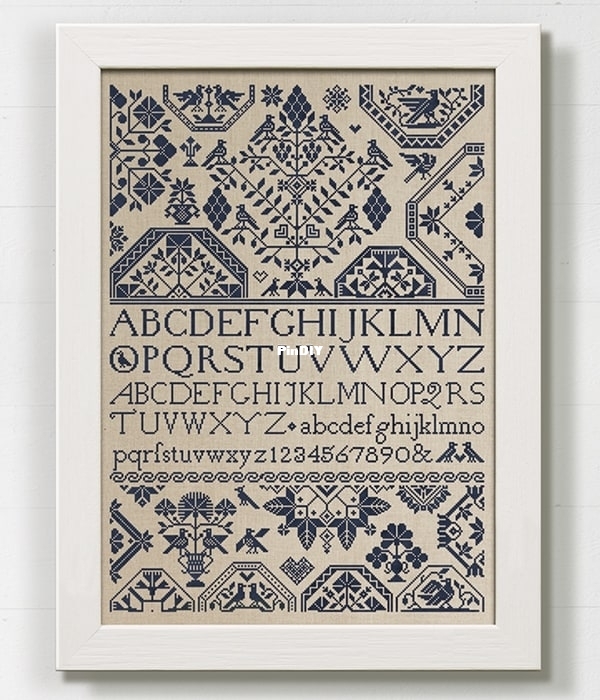 ABCDEFGHIJKLMN
OPQRSTUVWXYZ
PinDIY
ABCDEFGHIJKLMNOPQRS
TUVWXYZ abcdefghijklmno
pqrſstuvwxyz1234567890&